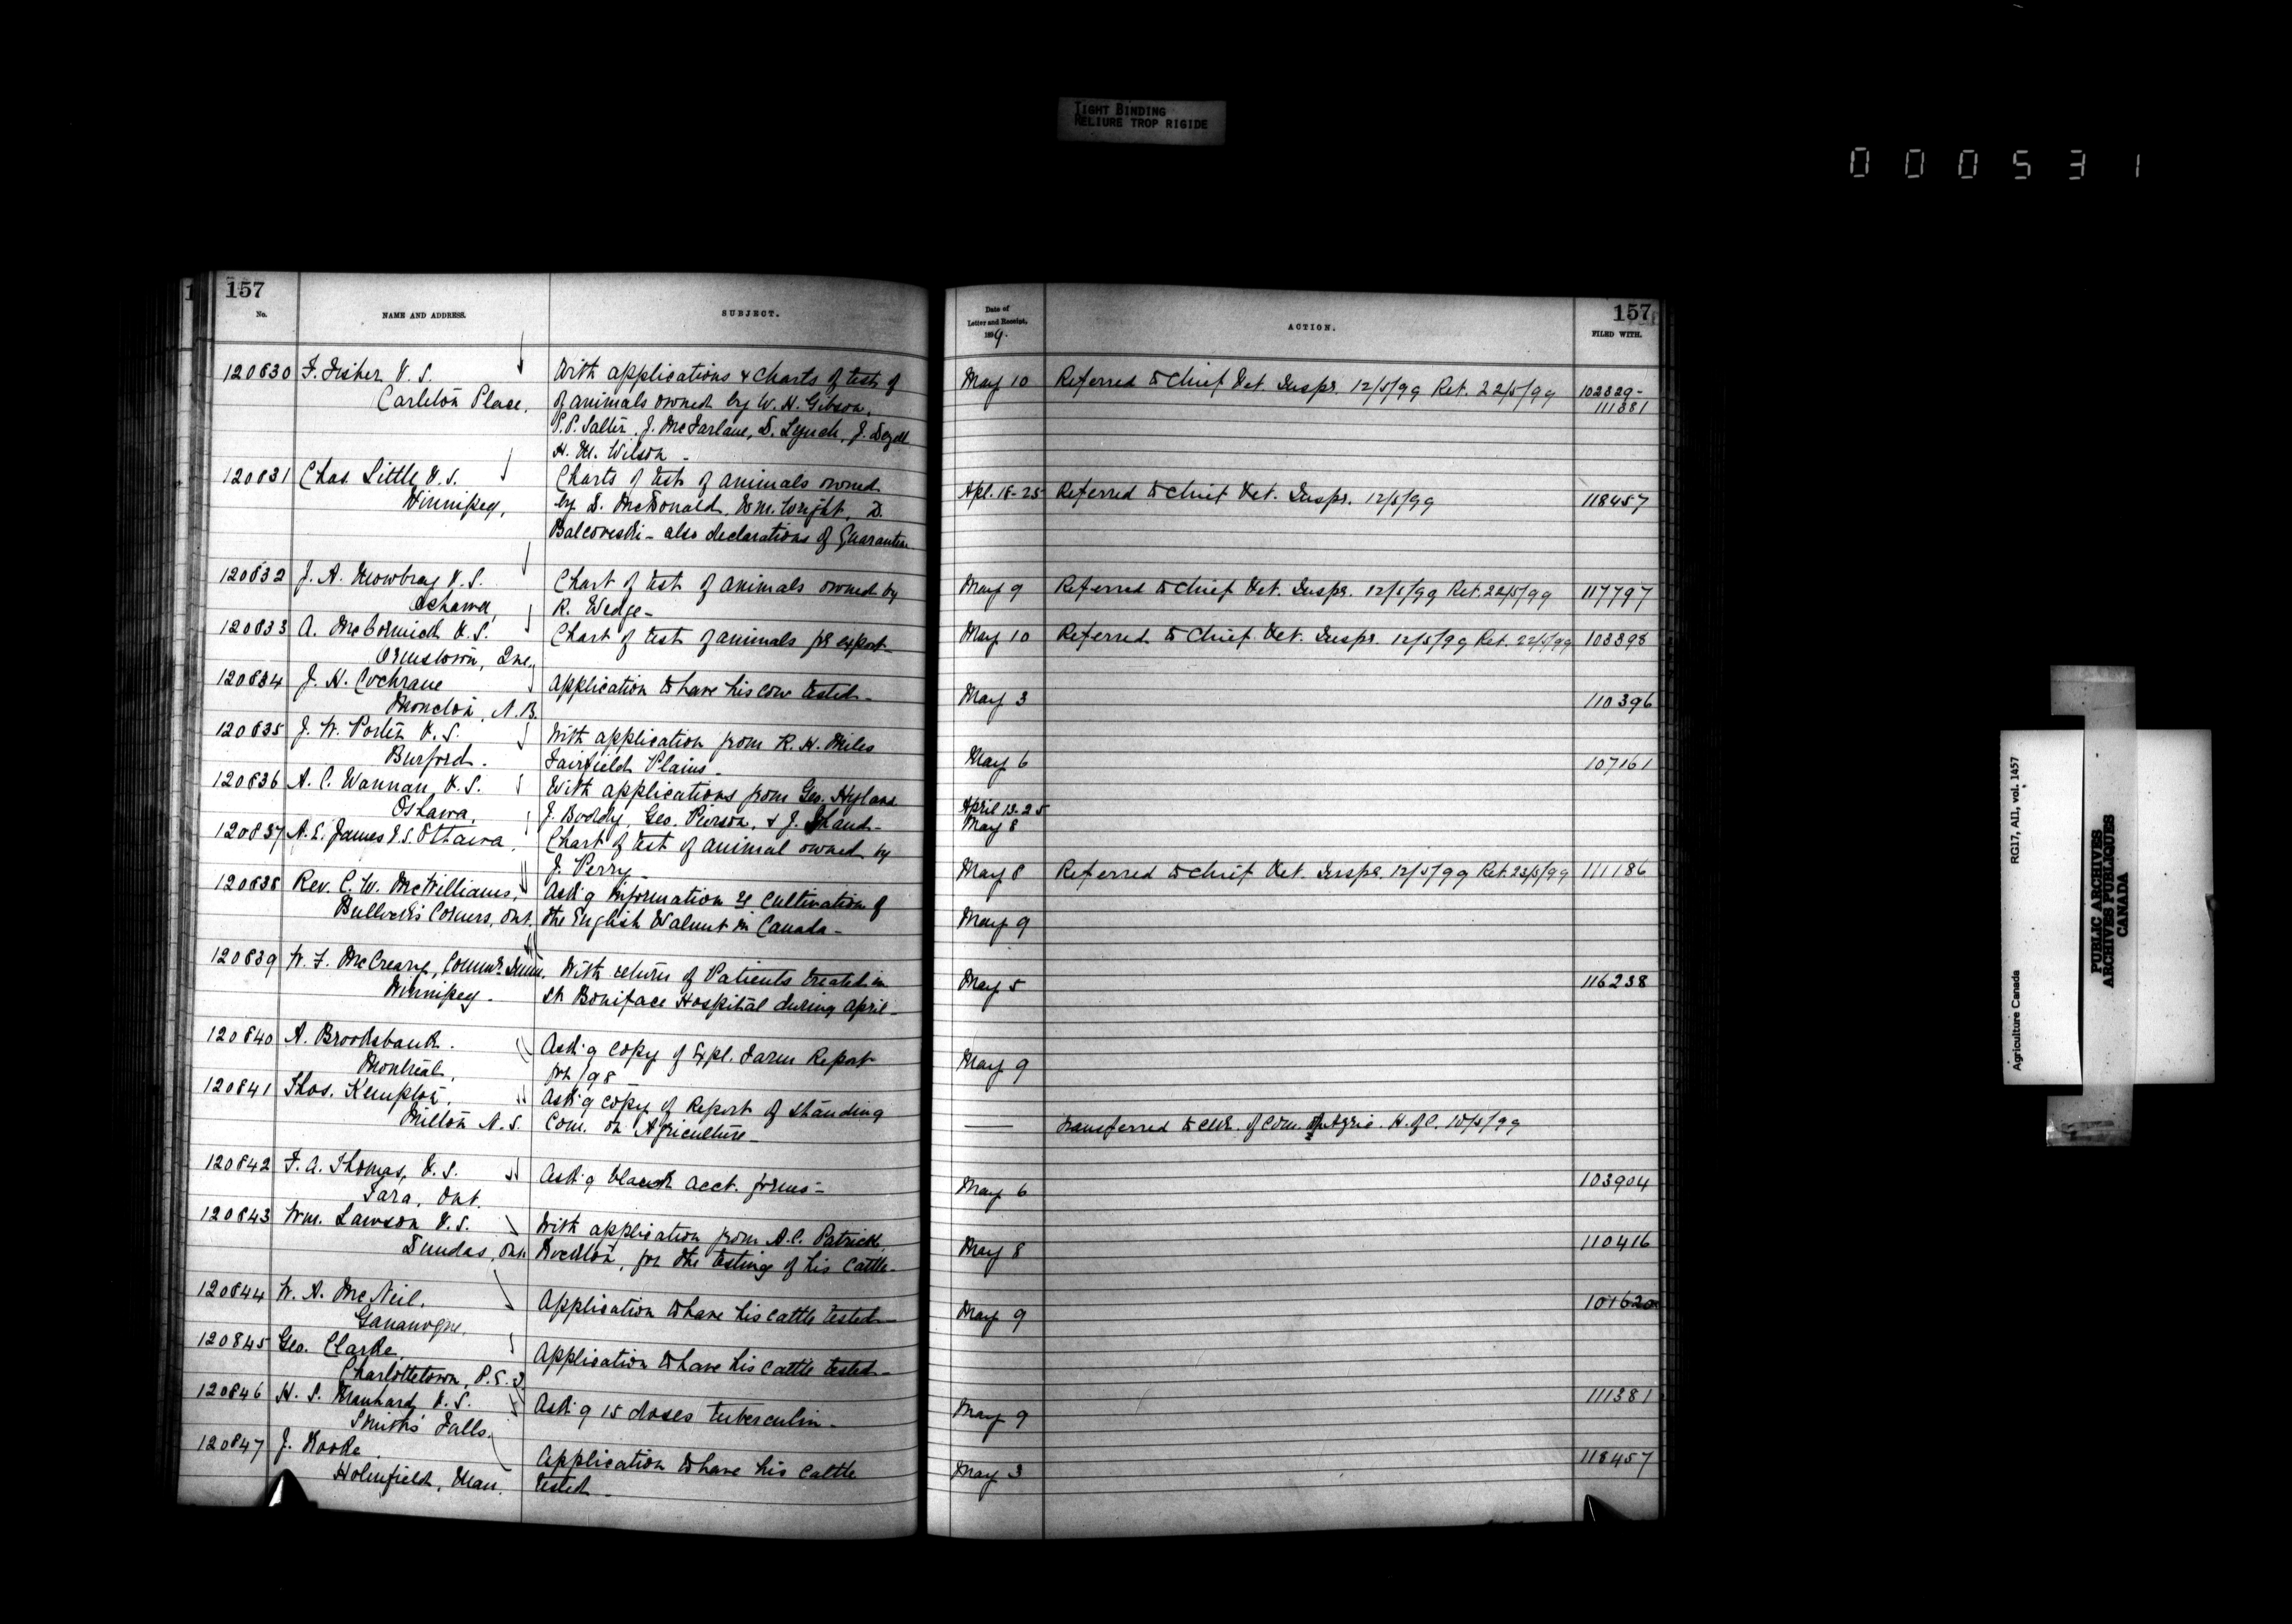 TIGHT BINDING
RELIURE TROP RIGIDE
000531
157
No.
NAME AND ADDRESS.
SUBJECT.
120830 F. Fisher V.S.
Carleton Place,
With applications & charts of test of
of animals owned by W. H. Gibson,
P.P. Salter, J. McFarlane, D. Lynch, J.
H. M. Wilson -
120831 Chas. Little V.S.
Winnipeg,
Charts of test of animals owned
by D. McDonald, Wm. Wright, D.
Balcoveski - also declarations of Quarantine
120832 J. A. Mowbray V.S.
Oshawa,
Chart of test of animals owned by
R. Wedge -
120833 A. McCormick V.S.
Ormstown, Que,
Chart of test of animals for export -
120834 J. H. Cochrane
Moncton, N.B.
Application to have his cow tested -
120835 J. W. Porter V.S.
Burford.
With application from R. H. Miles
Fairfield Plains -
120836 A. C. Wannan, V.S.
Oshawa,
With applications from Geo. Hyland
J. Boddy, Geo. Pierson, & J. Shand -
120837 A. E. James V.S. Ottawa.
Chart of test of animal owned by
J. Perry -
120838 Rev. C. W. McWilliams,
Bullock's Corners, Ont.
Ask'g information re cultivation of
the English Walnut in Canada -
120839 W. F. McCreary, Commr. Imm.
Winnipeg.
With return of Patients treated in
St Boniface Hospital during April -
120840 A. Brooksbank.
Montreal,
Ask'g copy of Expl. Farm Report
for /98
120841 Thos. Kempton,
Milton N.S.
Ask'g copy of Report of Standing
Com. on Agriculture -
120842 F. A. Thomas, V.S.
Tara, Ont.
Ask'g blank acct. forms -
120843 Wm. Lawson V.S.
Dundas, Ont.
With application from A.C. Patrick,
for the testing of his cattle -
120844 W. A. McNeil.
Gananoque.
Application to have his cattle tested -
120845 Geo. Clarke,
Charlottetown, P.E.I.
Application to have his cattle tested -
120846 H. S. Manhard V.S.
Smith's Falls.
Ask'g 15 doses tuberculin -
120847 J. Rooke
Holmfield, Man.
Application to have his cattle
tested -
157
Date of
Letter and Receipt.
1899.
ACTION.
FILED WITH.
May 10 Referred to Chief Vet. Inspr. 12/5/99 Ret. 22/5/99 102329-
111381
Apl. 18-25 Referred to Chief Vet. Inspr. 12/5/99 118457
May 9 Referred to Chief Vet. Inspr. 12/5/99 Ret. 22/5/99 117797
May 10 Referred to Chief Vet. Inspr. 12/5/99 Ret. 22/5/99 103398
May 3 110396
May 6 107161
April 13-25
May 8
May 8 Referred to Chief Vet. Inspr. 12/5/99 Ret. 23/5/99 111186
May 9
May 5 116238
May 9
— transferred to Clk. of Com. of Agric. H. of C. 10/5/99
May 6 103904
May 8 110416
May 9 101620
May 9 111381
May 3 118457
Agriculture Canada RG17, AII, vol. 1457
PUBLIC ARCHIVES
ARCHIVES PUBLIQUES
CANADA